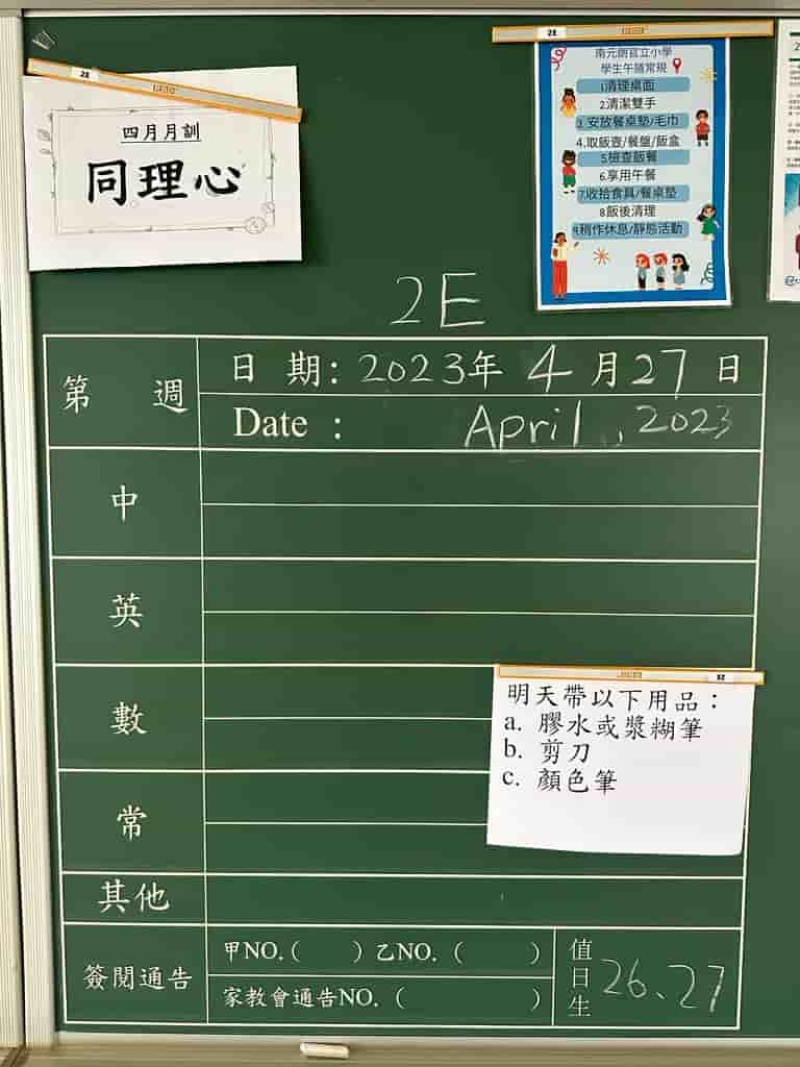 2E
四月月訓
同理心
2E
南元朗官立小學
學生午膳常規
1清理桌面
2.清潔雙手
3.安放餐桌墊/毛巾
4.取飯壺/餐盤/飯盒
5.檢查飯餐
6.享用午餐
7.收拾食具/餐桌墊
8飯後清理
9.稍作休息/靜態活動
2E
第 週
日 期: 2023年 4 月 27 日
Date : April , 2023
中
英
數
明天帶以下用品：
a. 膠水或漿糊筆
b. 剪刀
c. 顏色筆
常
其他
簽閱通告
甲NO.( ) 乙NO. ( )
家教會通告NO. ( )
值日生 26、27